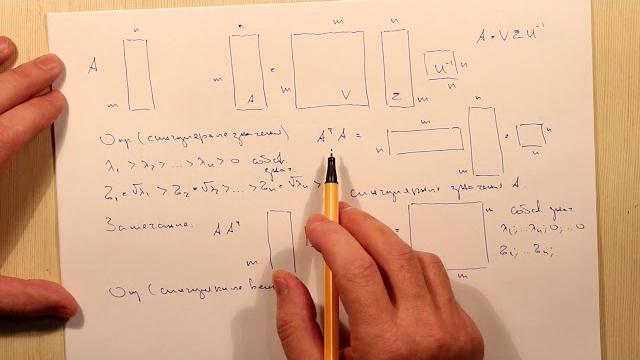 n m n
A m A = m V Σ U⁻¹ n A = V Σ U⁻¹
m n
Опр. (сингулярные значения) AᵀA = n m n = n
λ₁ > λ₂ > ... > λₙ > 0 собств. знач.
Σ₁ = √λ₁ > Σ₂ = √λ₂ > ... > Σₙ = √λₙ > сингулярные значения A.
Замечание. AAᵀ m = m собств. знач.
λ₁; ... λₙ; 0; ... 0
Σ₁; ... Σₙ;
m
Опр. (сингулярные век